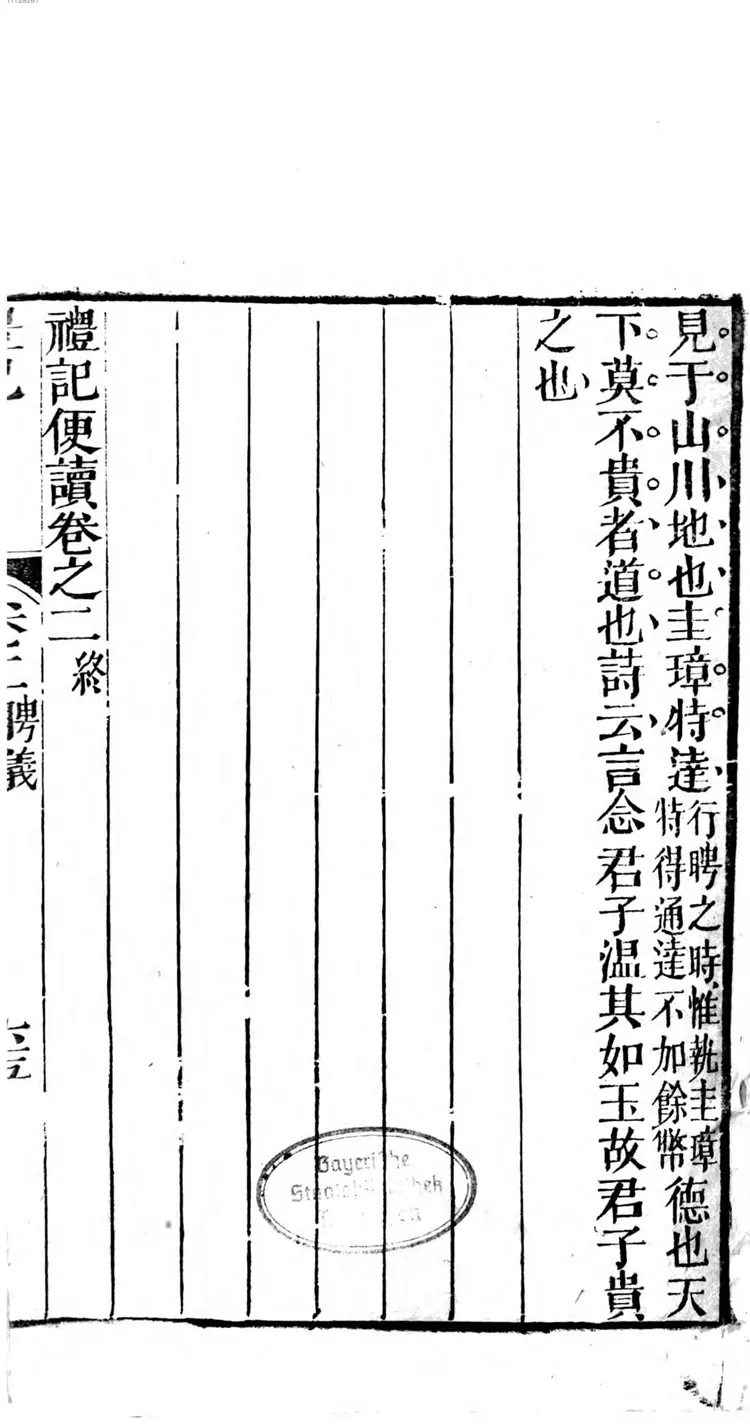 見于山川地也圭璋特達行聘之時惟執圭璋特得通達不加餘幣德也天
下莫不貴者道也詩云言念君子温其如玉故君子貴
之也
禮記便讀卷之二終
聘義
Bayerische
Staatsbibliothek